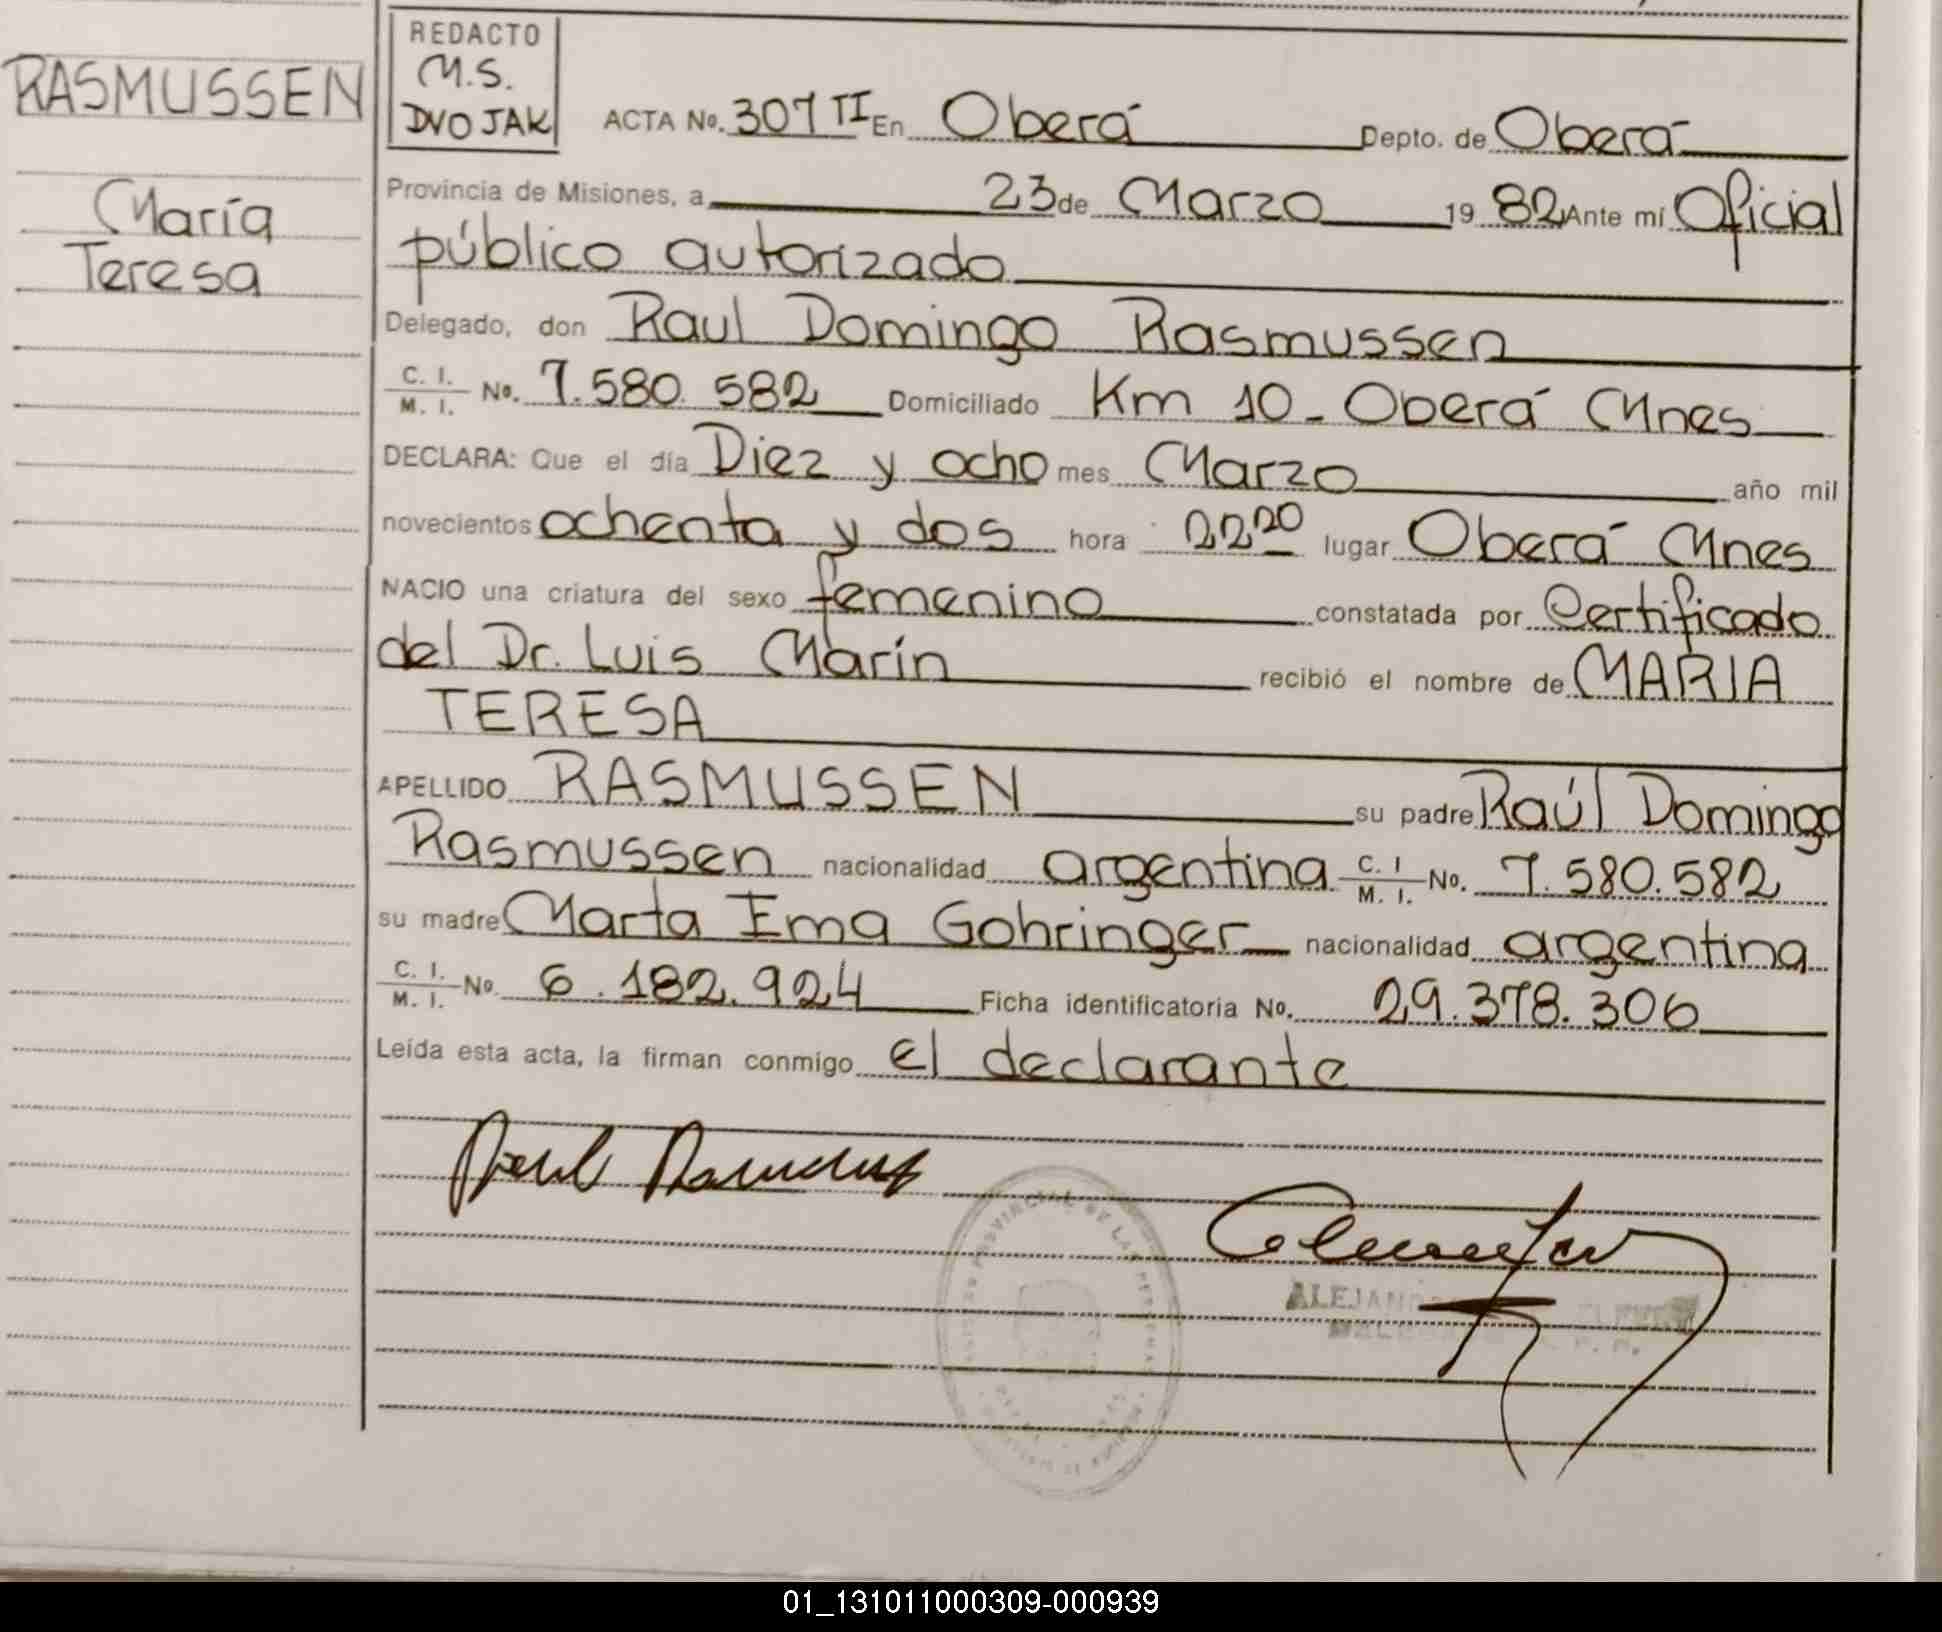 RASMUSSEN
María
Teresa
REDACTO
M.S.
DVOJAK
ACTA No. 307 II En Oberá Depto. de Oberá
Provincia de Misiones, a 23 de Marzo 19 82 Ante mí Oficial
público autorizado
Delegado, don Raul Domingo Rasmussen
C. I. M. I. No. 7.580.582 Domiciliado Km 10 - Oberá Mnes
DECLARA: Que el día Diez y ocho mes Marzo año mil
novecientos ochenta y dos hora 22 20 lugar Oberá Mnes
NACIO una criatura del sexo femenino constatada por Certificado
del Dr. Luis Marín recibió el nombre de MARIA
TERESA
APELLIDO RASMUSSEN su padre Raúl Domingo
Rasmussen nacionalidad argentina C. I M. I. No. 7.580.582
su madre Marta Ema Gohringer nacionalidad argentina
C. I. M. I. No. 6.182.924 Ficha identificatoria No. 29.378.306
Leída esta acta, la firman conmigo el declarante
PROVINCIAL DE LAS PERSONAS
01_131011000309-000939